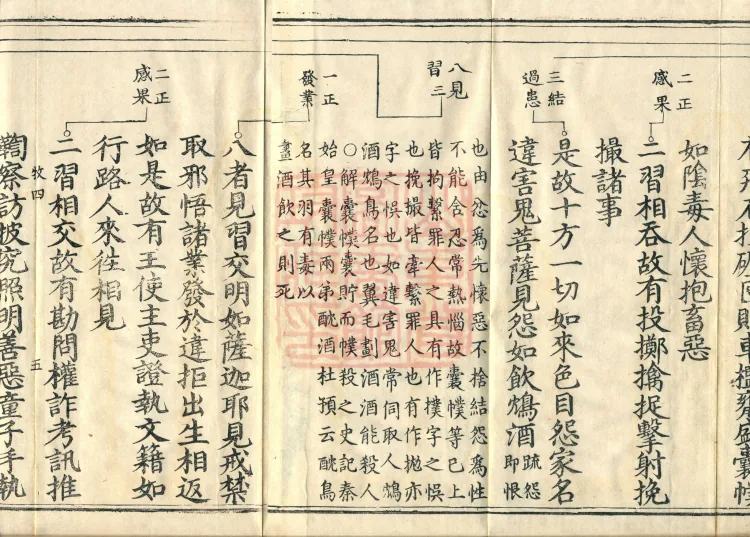 二正
感果
如陰毒人懷抱畜惡
二習相吞故有投擲擒捉擊射挽
撮諸事
三結
過患
是故十方一切如來色目怨家名
違害鬼菩薩見怨如飲鴆酒疏怨
即恨
也由忿爲先懷惡不捨結怨爲性
不能含忍常熱惱故囊幞等已上
皆拘繫罪人之具有作撲字之悞
也挽撮皆牽繫罪人也有作拋亦
字之悞也如違害鬼常伺取人鴆
酒鴆鳥名也翼毛劃酒酒能殺人
○解囊幞囊貯而幞殺之史記秦
始皇囊幞兩弟酖酒杜預云酖鳥
名其羽有毒以
畫酒飲之則死
八見
習三
一正
發業
八者見習交明如薩迦耶見戒禁
取邪悟諸業發於違拒出生相返
如是故有王使主吏證執文籍如
行路人來往相見
二正
感果
二習相交故有勘問權詐考訊推
牧四 五
鞫察訪披究照明善惡童子手執